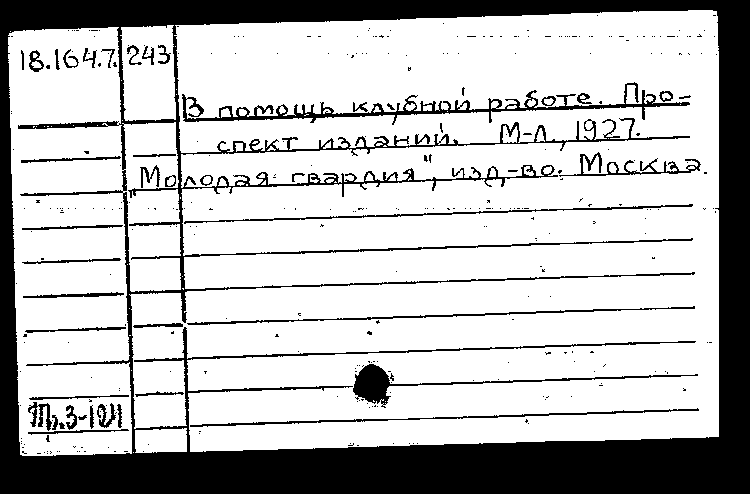 18.164.7. 243
В помощь клубной работе. Про-
спект изданий. М-Л., 1927.
"Молодая гвардия", изд-во. Москва.